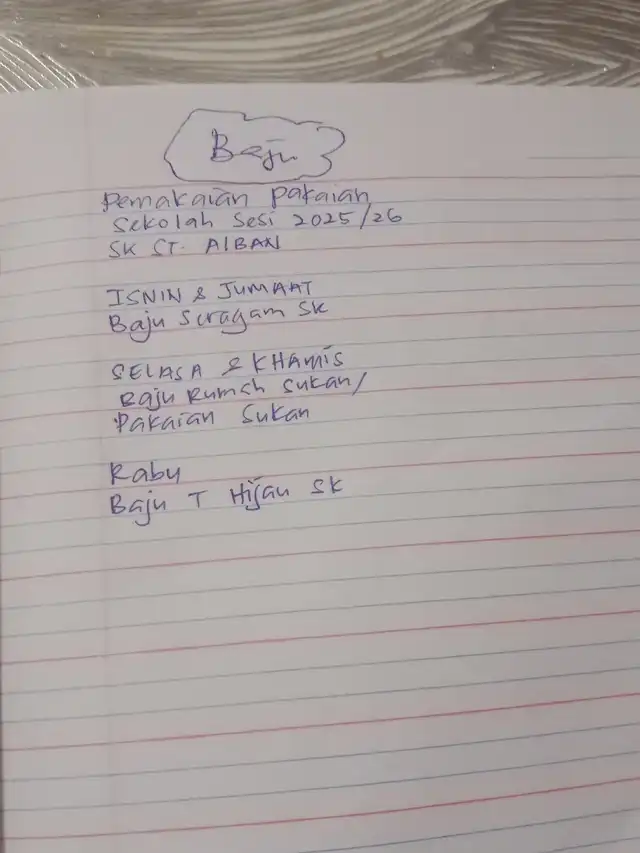 Baju
Pemakaian Pakaian
Sekolah Sesi 2025/26
SK ST. AlBAN
ISNIN & JUMAAT
Baju Seragam SK
SELASA & KHAMIS
Baju Rumah Sukan/
Pakaian Sukan
Rabu
Baju T Hijau SK